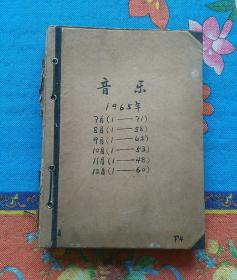 音乐
1965年
7月(1——71)
8月(1——58)
9月(1——65)
10月(1——53)
11月(1——48)
12月(1——60)